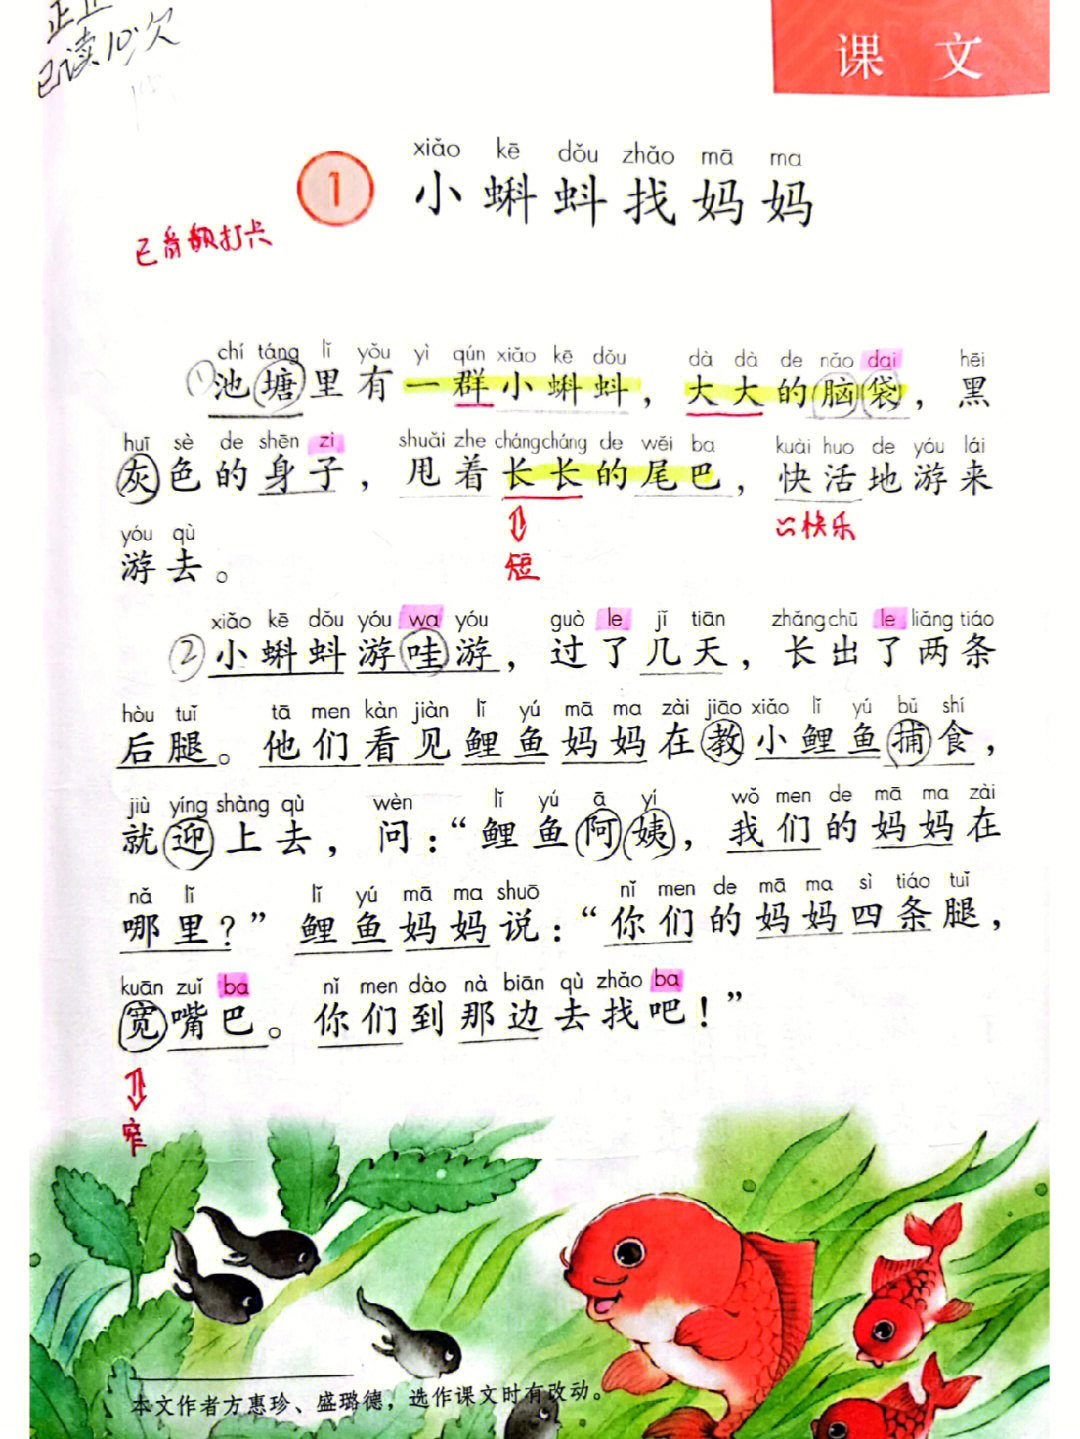 正正
已读10次
课 文
xiǎo kē dǒu zhǎo mā ma
1 小蝌蚪找妈妈
已背诵打卡
chí táng lǐ yǒu yì qún xiǎo kē dǒu dà dà de nǎo dai hēi
① 池塘里有一群小蝌蚪，大大的脑袋，黑
huī sè de shēn zi shuǎi zhe cháng cháng de wěi ba kuài huo de yóu lái
灰色的身子，甩着长长的尾巴，快活地游来
短
≈快乐
yóu qù
游去。
xiǎo kē dǒu yóu wa yóu guò le jǐ tiān zhǎng chū le liǎng tiáo
② 小蝌蚪游哇游，过了几天，长出了两条
hòu tuǐ tā men kàn jiàn lǐ yú mā ma zài jiāo xiǎo lǐ yú bǔ shí
后腿。他们看见鲤鱼妈妈在教小鲤鱼捕食，
jiù yíng shàng qù wèn lǐ yú ā yí wǒ men de mā ma zài
就迎上去，问：“鲤鱼阿姨，我们的妈妈在
nǎ lǐ lǐ yú mā ma shuō nǐ men de mā ma sì tiáo tuǐ
哪里？”鲤鱼妈妈说：“你们的妈妈四条腿，
kuān zuǐ ba nǐ men dào nà biān qù zhǎo ba
宽嘴巴。你们到那边去找吧！”
窄
本文作者方惠珍、盛璐德，选作课文时有改动。